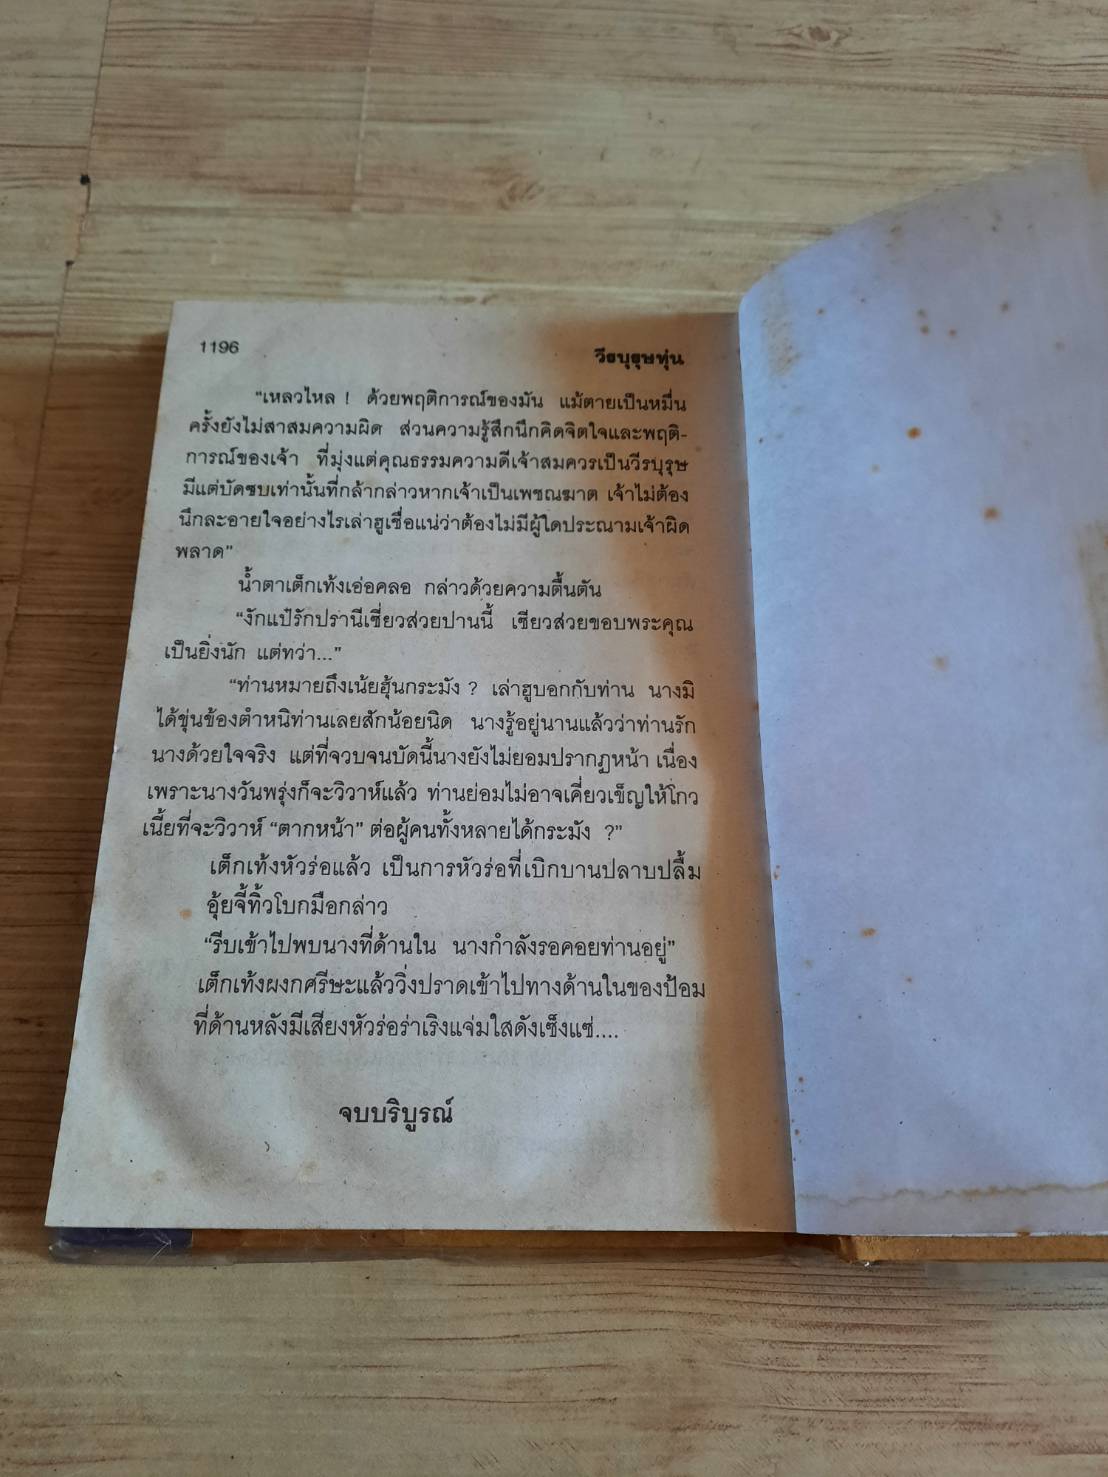 1196
วีรบุรุษทุ่น
“เหลวไหล ! ด้วยพฤติการณ์ของมัน แม้ตายเป็นหมื่น
ครั้งยังไม่สาสมความผิด ส่วนความรู้สึกนึกคิดจิตใจและพฤติ-
การณ์ของเจ้า ที่มุ่งแต่คุณธรรมความดีเจ้าสมควรเป็นวีรบุรุษ
มีแต่บัดซบเท่านั้นที่กล้ากล่าวหากเจ้าเป็นเพชณฆาต เจ้าไม่ต้อง
นึกละอายใจอย่างไรเล่าฮูเชื่อแน่ว่าต้องไม่มีผู้ใดประณามเจ้าผิด
พลาด”
น้ำตาเต็กเท้งเอ่อคลอ กล่าวด้วยความตื้นตัน
“งักแป๋รักปรานีเซี่ยวส่วยปานนี้ เซียวส่วยขอบพระคุณ
เป็นยิ่งนัก แต่ทว่า...”
“ท่านหมายถึงเน้ยฮุ้นกระมัง ? เล่าฮูบอกกับท่าน นางมิ
ได้ขุ่นข้องตำหนิท่านเลยสักน้อยนิด นางรู้อยู่นานแล้วว่าท่านรัก
นางด้วยใจจริง แต่ที่จวบจนบัดนี้นางยังไม่ยอมปรากฏหน้า เนื่อง
เพราะนางวันพรุ่งก็จะวิวาห์แล้ว ท่านย่อมไม่อาจเคี่ยวเข็ญให้โกว
เนี้ยที่จะวิวาห์ “ตากหน้า” ต่อผู้คนทั้งหลายได้กระมัง ?”
เต็กเท้งหัวร่อแล้ว เป็นการหัวร่อที่เบิกบานปลาบปลื้ม
อุ้ยจี้ทิ้วโบกมือกล่าว
“รีบเข้าไปพบนางที่ด้านใน นางกำลังรอคอยท่านอยู่”
เต็กเท้งผงกศรีษะแล้ววิ่งปราดเข้าไปทางด้านในของป้อม
ที่ด้านหลังมีเสียงหัวร่อร่าเริงแจ่มใสดังเซ็งแซ่....
จบบริบูรณ์